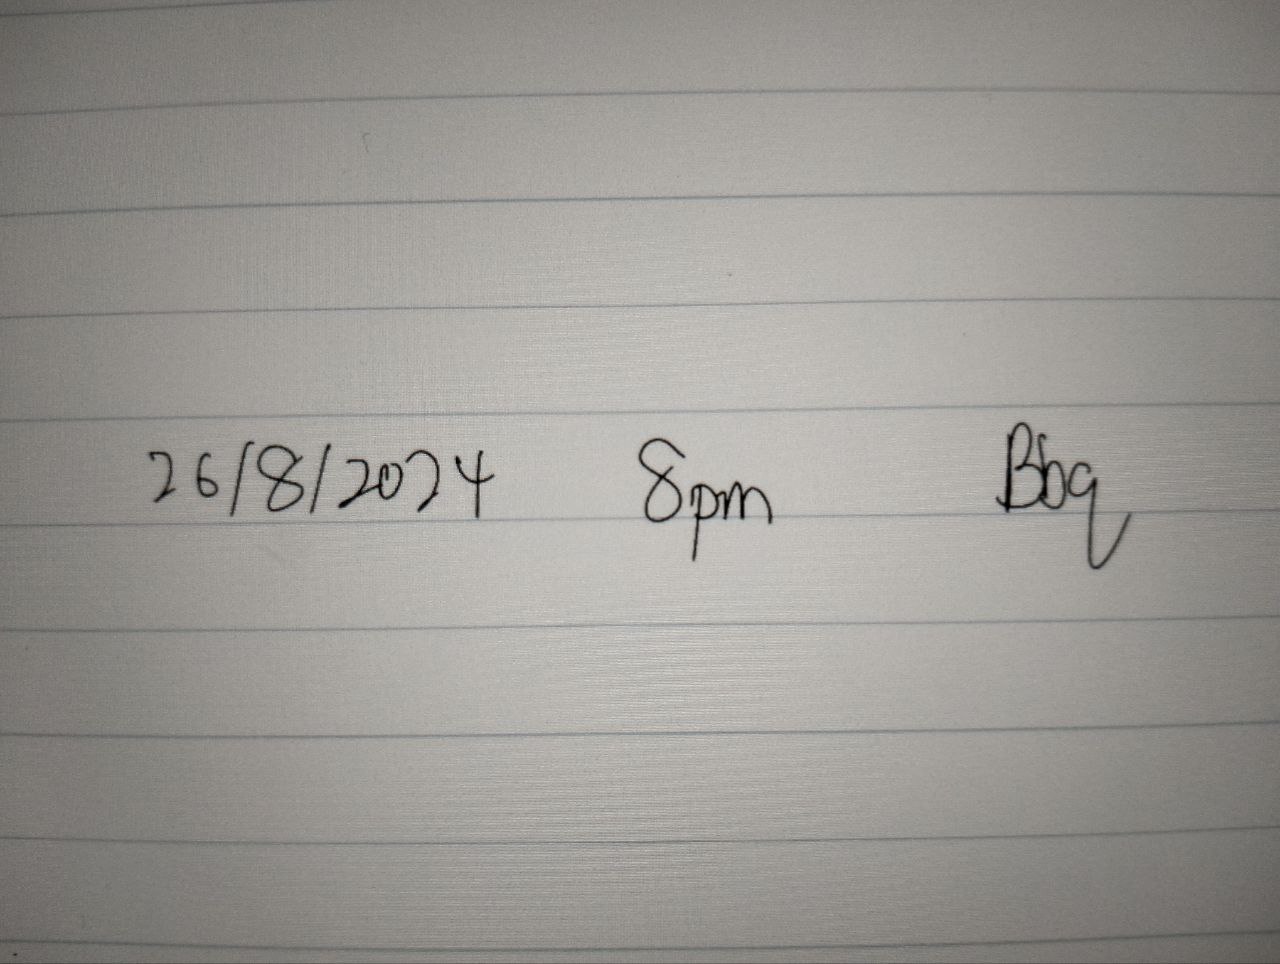 26/8/2024 8pm Bbq